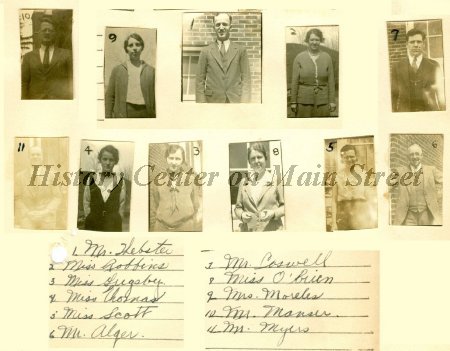 10
9
1
2
7
11
4
3
8
5
6
History Center on Main Street
1 Mr. Webster
2 Miss Robbins
3 Miss Grigsby
4 Miss Thomas
5 Miss Scott
6 Mr. Alger.
7 Mr. Coswell
8 Miss O'Brien
9 Mrs. Morales
10 Mr. Manser
11 Mr. Myers